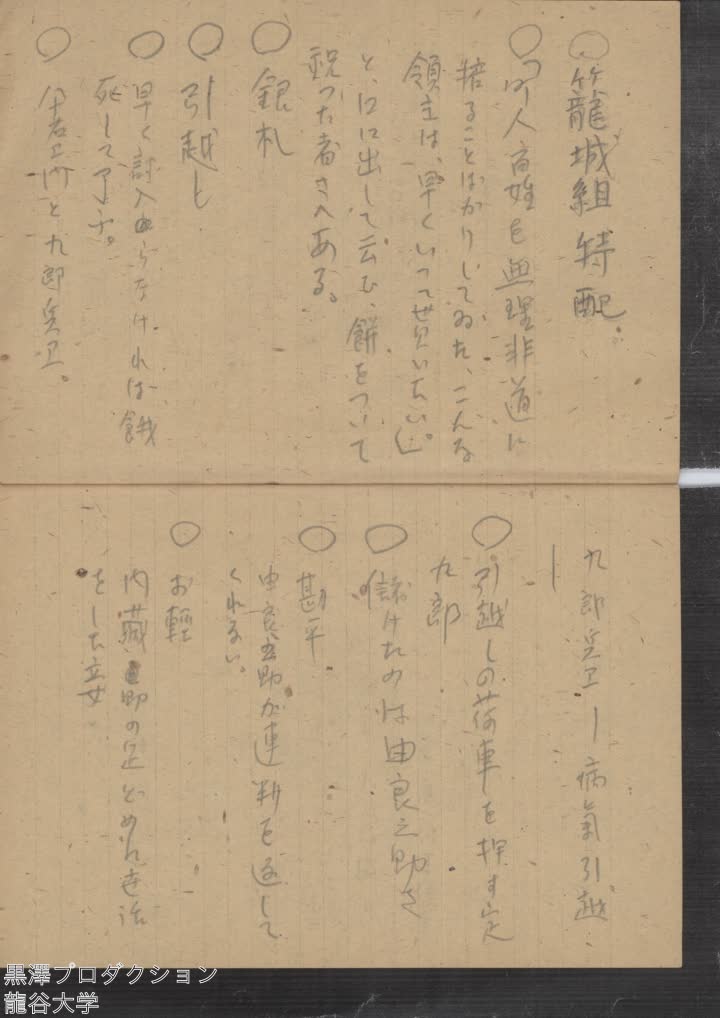 ○籠城組特配。
○「町人百姓を無理非道に
搾ることばかりしてゐた、こんな
領主は、早くいつて貰いたい」。
と、口に出して云ひ、餅をついて
祝つた者さへある。
○銀札
○引越し
○早く討入やらなければ餓
死して了ふ。
○ 九郎兵卫。
九郎兵卫ー病氣引越、
ー
○引越しの荷車を押す定
九郎
○儲けたのは由良之助さ
○勘平
由良之助が連判を返して
くれない。
○お輕
内藏助の足どめに世話
をした女
黒澤プロダクション
龍谷大学